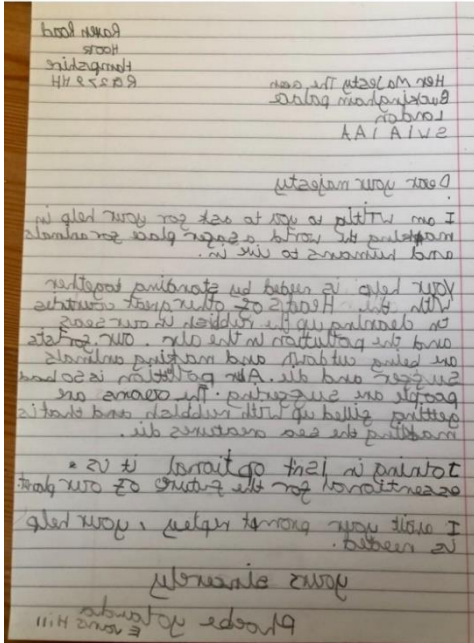 Raven Road
Hook
Hampshire
Her Majesty The Qeen
Buckingham palace
London
SW1A 1AA
Dear your majesty
I am writig to you to ask for your help in
making the world a safer place for animals
and humans to live in.
Your help is neded by standing together
with the Heads of other great
in cleaning up the rubbish in our seas
and the pollution in the air. our forists
are being cutdown and making animals
suffer and die. Air polltion is so bad
people are suffering. The oceans are
getting filled up with rubbish and that is
making the sea creatures die.
Joining in isnt optional it is
essentional for the future of our
I await your prompt repley, your help
is needed.
yours sincerely
Phoebe yolanda
Evans Hill